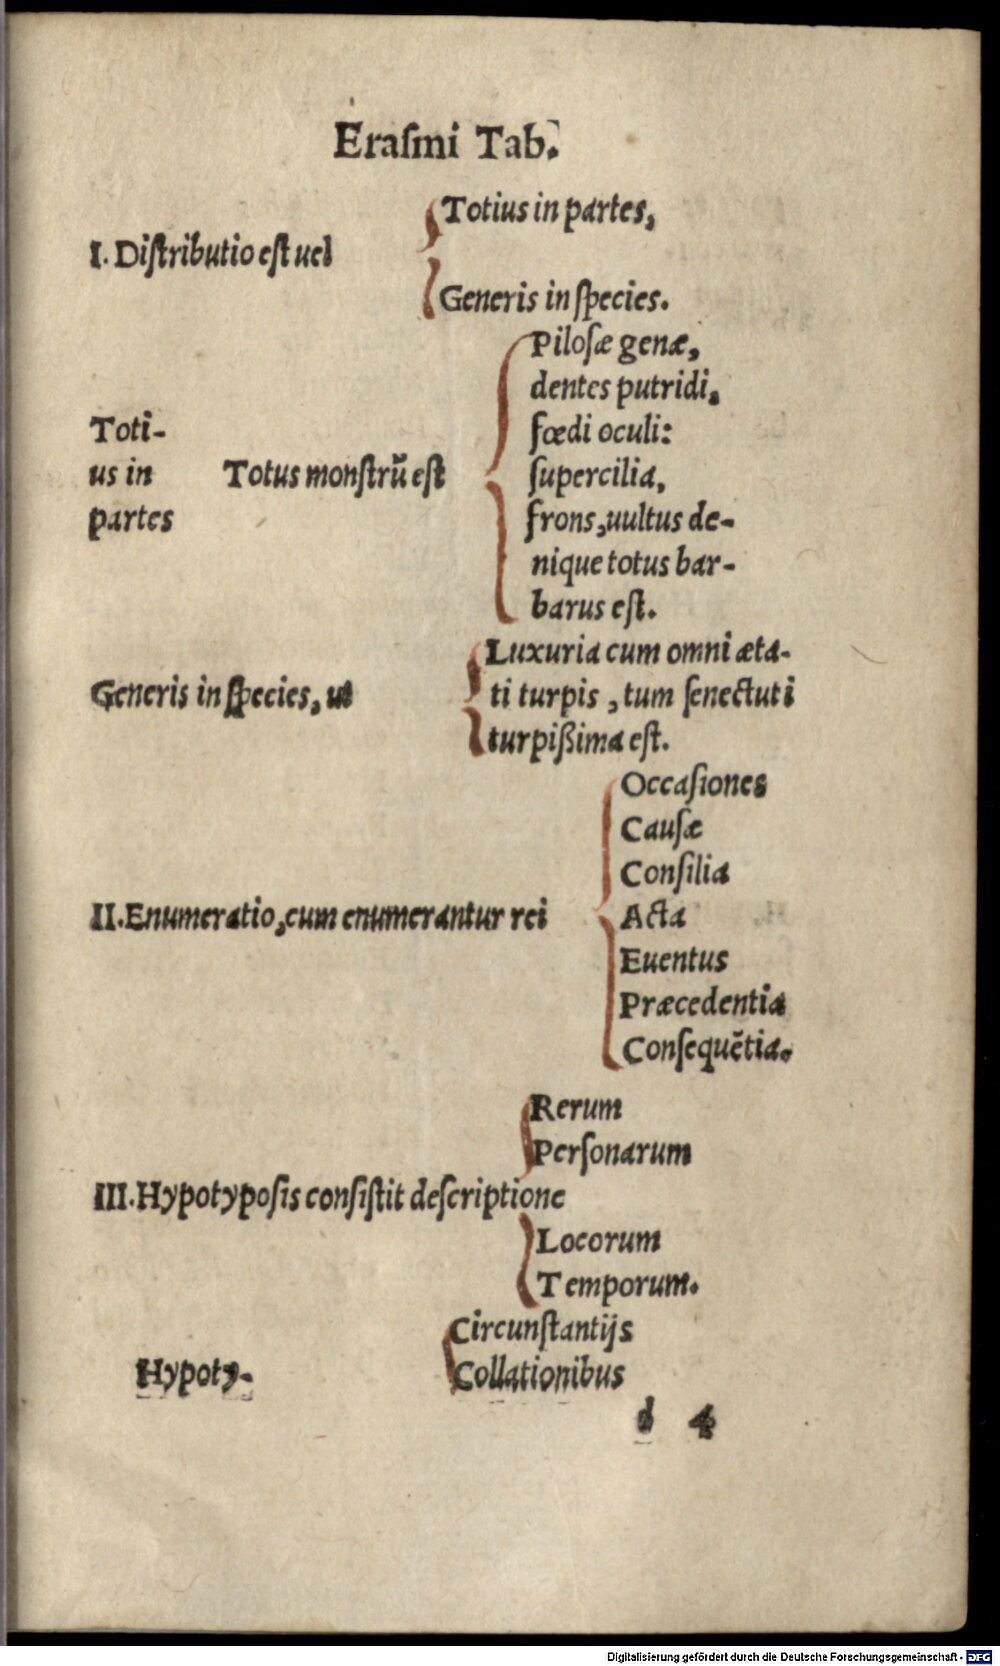 Eraſmi Tab.
Totius in partes,
I. Diſtributio eſt uel
Generis in ſpecies.
Piloſæ genæ,
dentes putridi,
Toti-
fœdi oculi:
us in Totus monſtrũ eſt
ſupercilia,
partes
frons, uultus de-
nique totus bar-
barus eſt.
Luxuria cum omni æta-
Generis in ſpecies, ut
ti turpis, tum ſenectuti
turpißima eſt.
Occaſiones
Cauſæ
Conſilia
II. Enumeratio, cum enumerantur rei
Acta
Euentus
Præcedentia
Conſequẽtia.
Rerum
Perſonarum
III. Hypotypoſis conſiſtit deſcriptione
Locorum
Temporum.
Circunſtantijs
Hypoty-
Collationibus
d 4
Digitalisierung gefördert durch die Deutsche Forschungsgemeinschaft - DFG